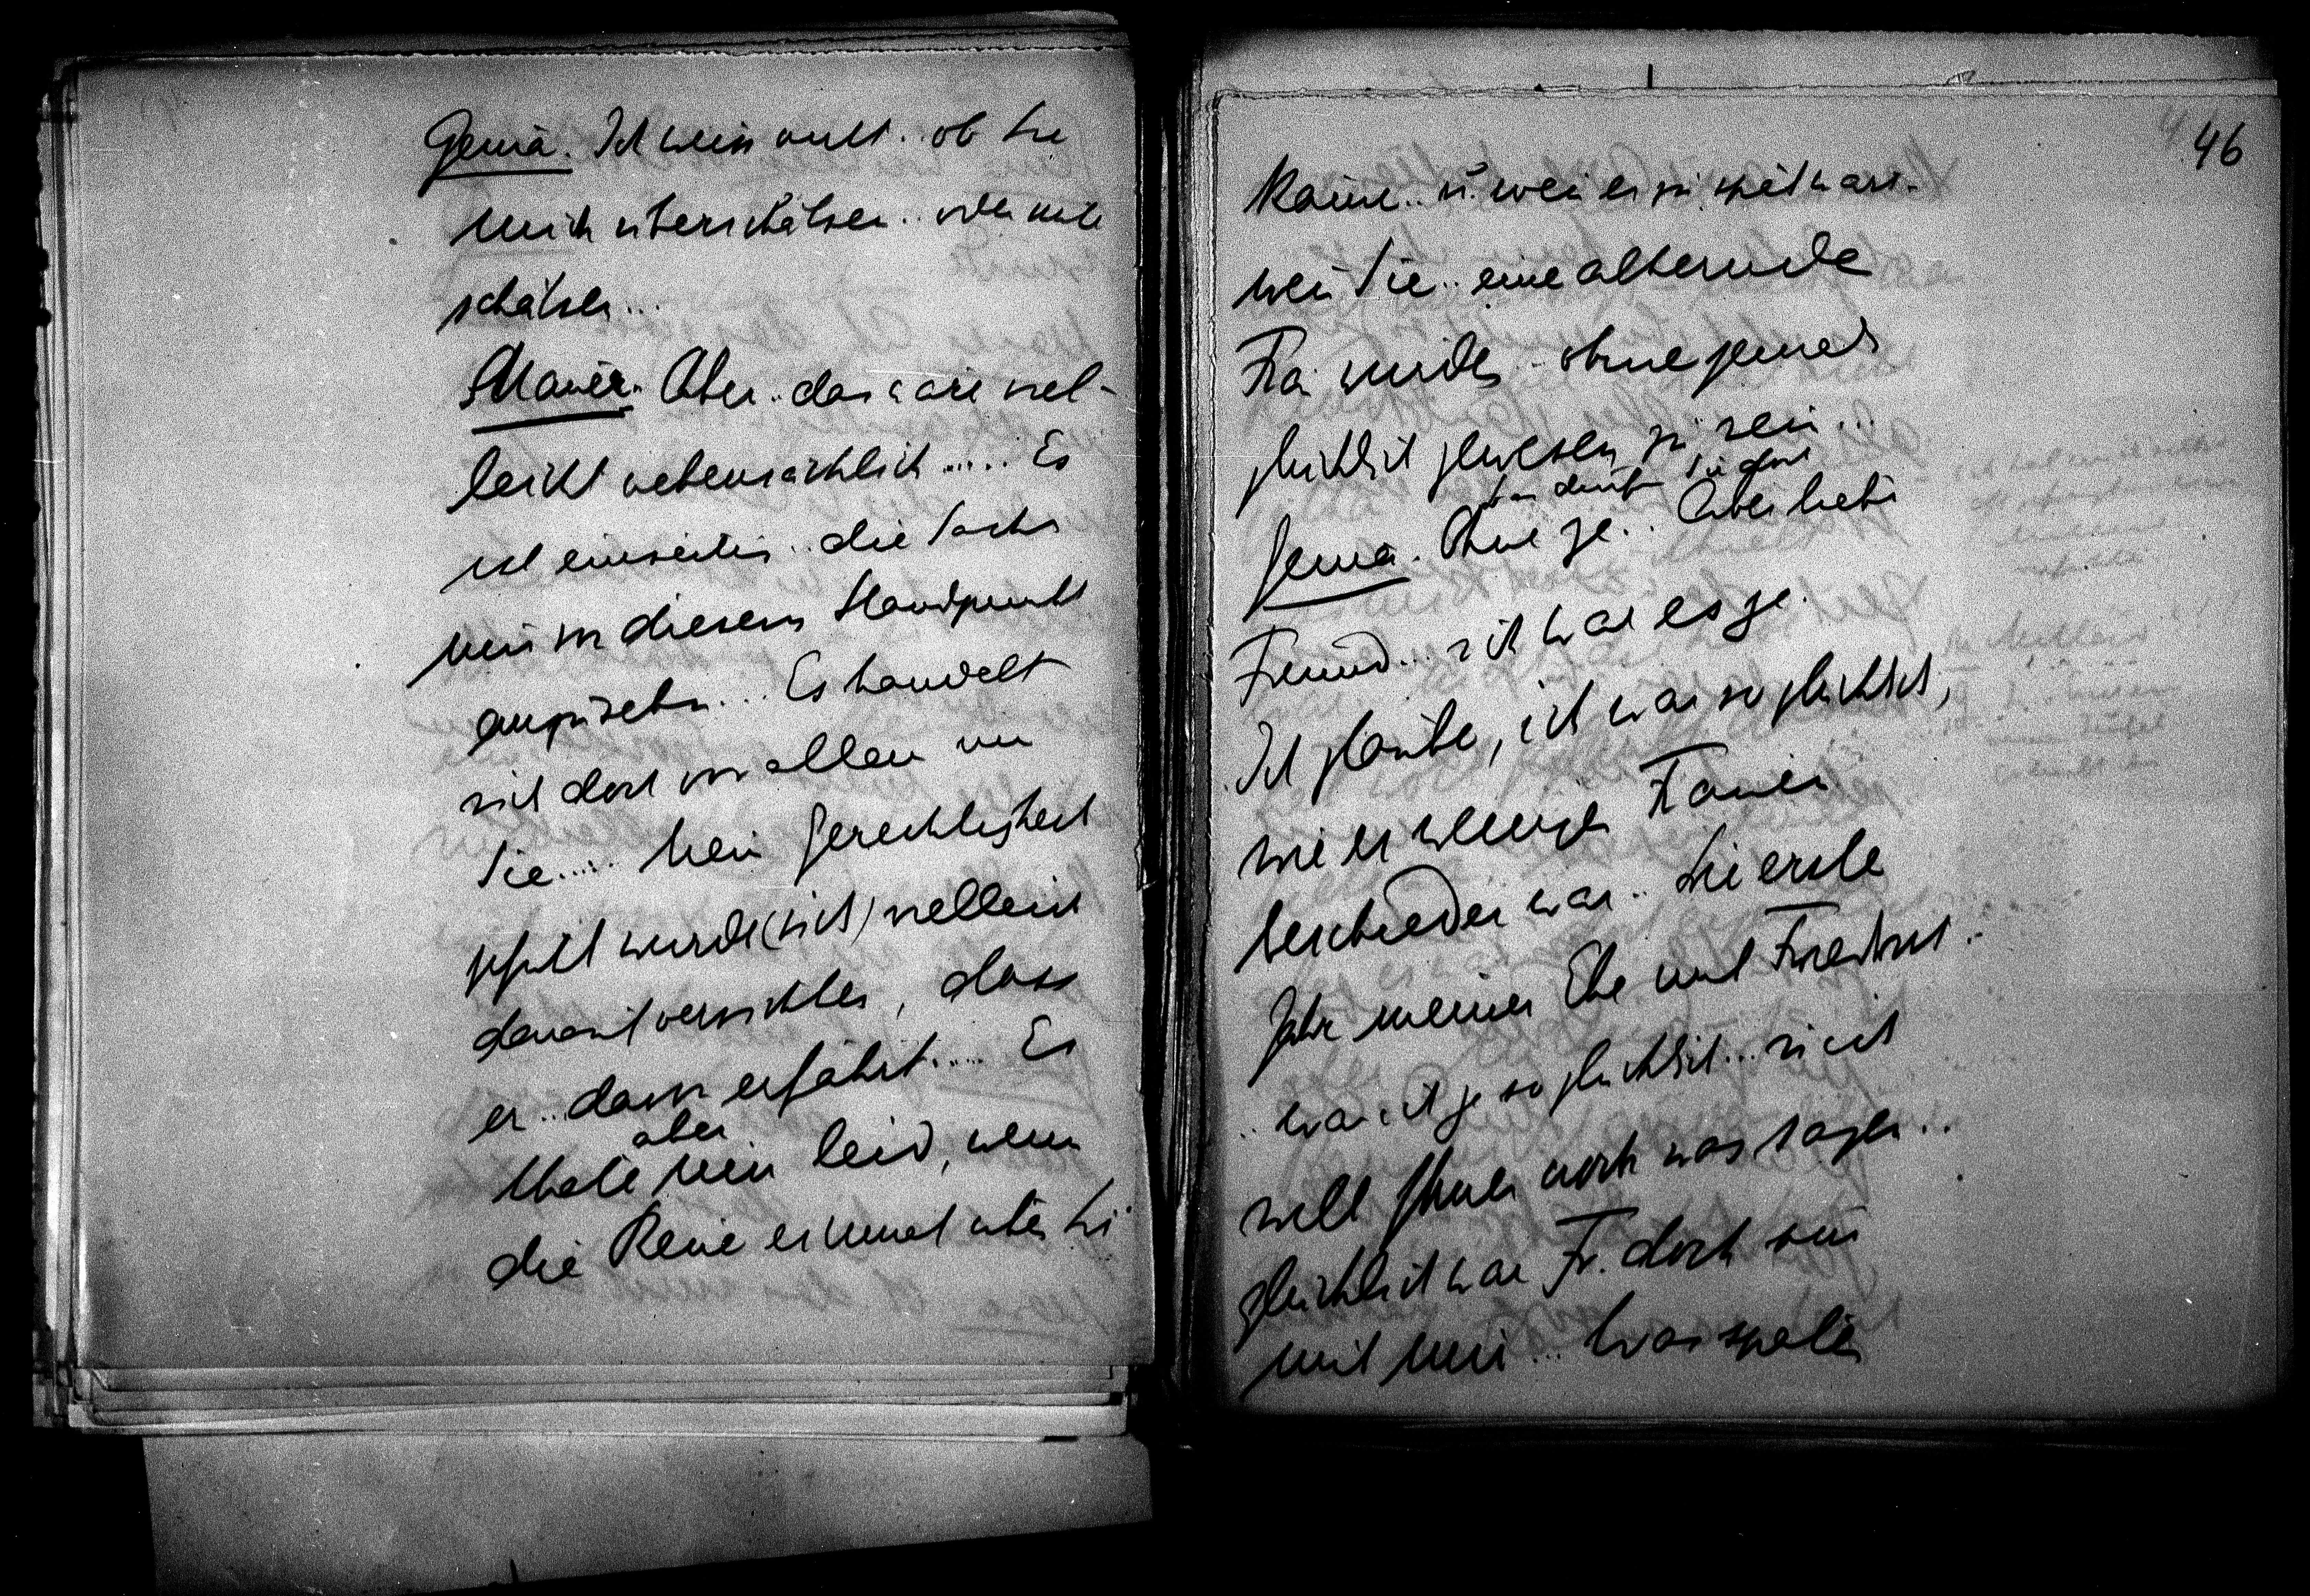 Genia. Ich weiss nicht.. ob Sie
mich überschätzen.. oder unter
schätzen...
Mauer. Aber.. das wäre viel-
leicht nebensächlich..... Es
ist einseitig.. die Sache
nur von diesem Standpunkt
anzusehn... Es handelt
sich doch vor allem um
Sie..... Mein Gerechtigkeits
gefühl würde (sich) vielleicht
darauf verzichten, dass
er.. davon erfährt..... Es
thäte aber mir leid, wenn
die Reue einmal über Sie
46
käme.. u. wenn es zu spät wäre.
wenn Sie.. eine alternde
Frau würden - ohne jemals
glücklich gewesen zu sein...
Genia. Ohne je.. Aber liebe
Freund... ich war es je.
Ich glaube, ich war so glücklich,
wie es wenigen Frauen
beschieden war.. Die erste
Jahr meiner Ehe mit Friedrich.
.. war ich ja so glücklich... u. ich
will Ihnen noch was sagen..
glücklich war Fr. doch nur
mit mir... Was später